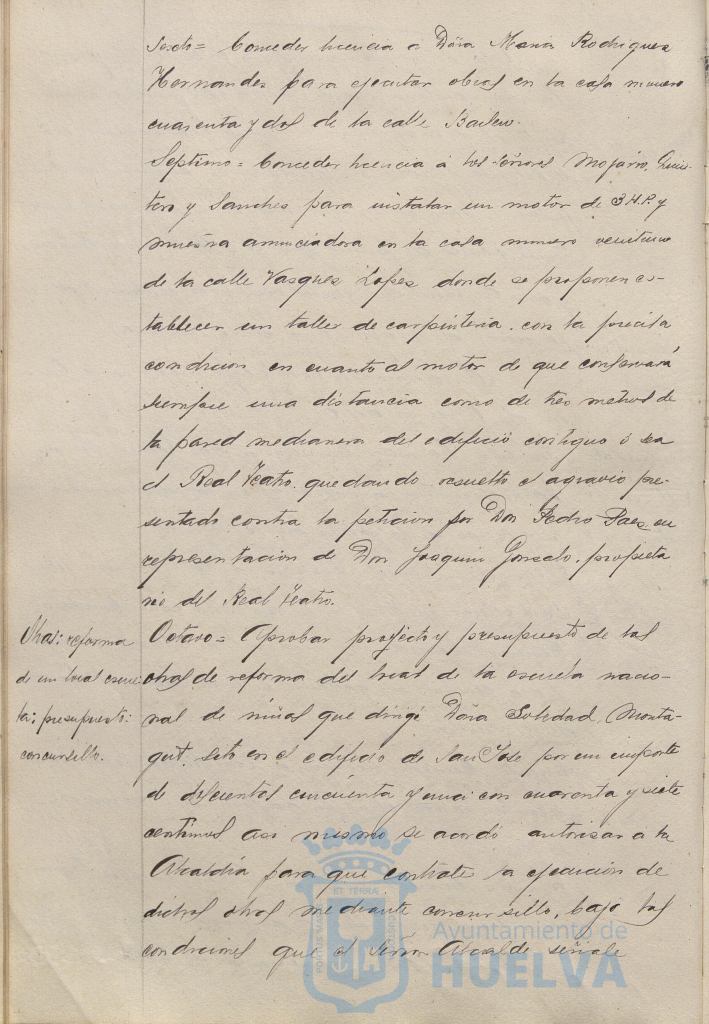 Sexto = Conceder licencia a Doña Maria Rodriguez
Hernandez para ejecutar obras en la casa número
cuarenta y dos de la calle Bailen.
Septimo = Conceder licencia á los señores Mojarro, Quin-
tero y Sanchez para instalar un motor de 3 H.P. y
muestra anunciadora en la casa número veintiuno
de la calle Vazquez Lopez donde se proponen es-
tablecer un taller de carpinteria. con la precisa
condicion en cuanto al motor de que conservará
siempre una distancia como de tres metros de
la pared medianera del edificio contiguo ó sea
el Real Teatro. quedando resuelto el agravio pre-
sentado contra la peticion por Don Pedro Paez en
representacion de Don Joaquin Gonzalo, propieta
rio del Real Teatro.
Obras: reforma
de un local escue-
la: presupuesto:
concursillo.
Octavo = Aprobar proyecto y presupuesto de las
obras de reforma del local de la escuela nacio-
nal de niñas que dirige Doña Soledad Monta-
gut, sito en el edificio de San Jose por un importe
de doscientas cincuenta y una con cuarenta y siete
centimos asi mismo se acordó autorizar á la
Alcaldía para que contrate la ejecución de
dichas obras mediante concursillo, bajo las
condiciones que el Señor Alcalde señale
ET TERRÆ
Ayuntamiento de
HUELVA